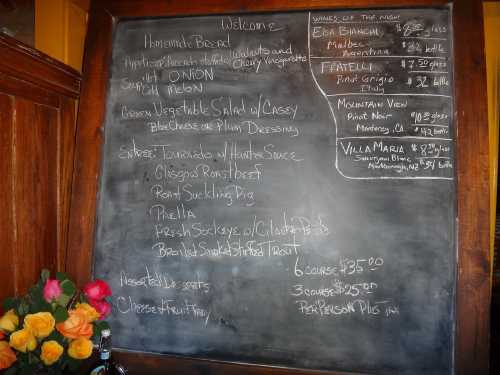 Welcome
Homemade Bread
Appetizer: Avocado stuffed w/ Walnuts and
Cherry Vinaigrette
Soup: Hot ONION
Cold MELON
Green Vegetable Salad w/ Casey
Blue Cheese or Plum Dressing
Entree: Tournado w/ Hunter Sauce
Glasgow Roast beef
Roast Suckling Pig
Paella
Fresh Sockeye w/ Cilantro
Broiled Smoked Trout
Assorted Desserts
Cheese & Fruit Tray
6 course $35.00
3 course $25.00
Per Person Plus
WINES OF THE NIGHT
EOA BIANCHI $8.00 glass
Malbec $32 bottle
Argentina
FRATELLI $7.50 glass
Pinot Grigio $32 bottle
Italy
MOUNTAIN VIEW
Pinot Noir $10.50 glass
Monterey, CA $42 bottle
VILLA MARIA $8.50 glass
Sauvignon Blanc $34 bottle
Marlborough, NZ